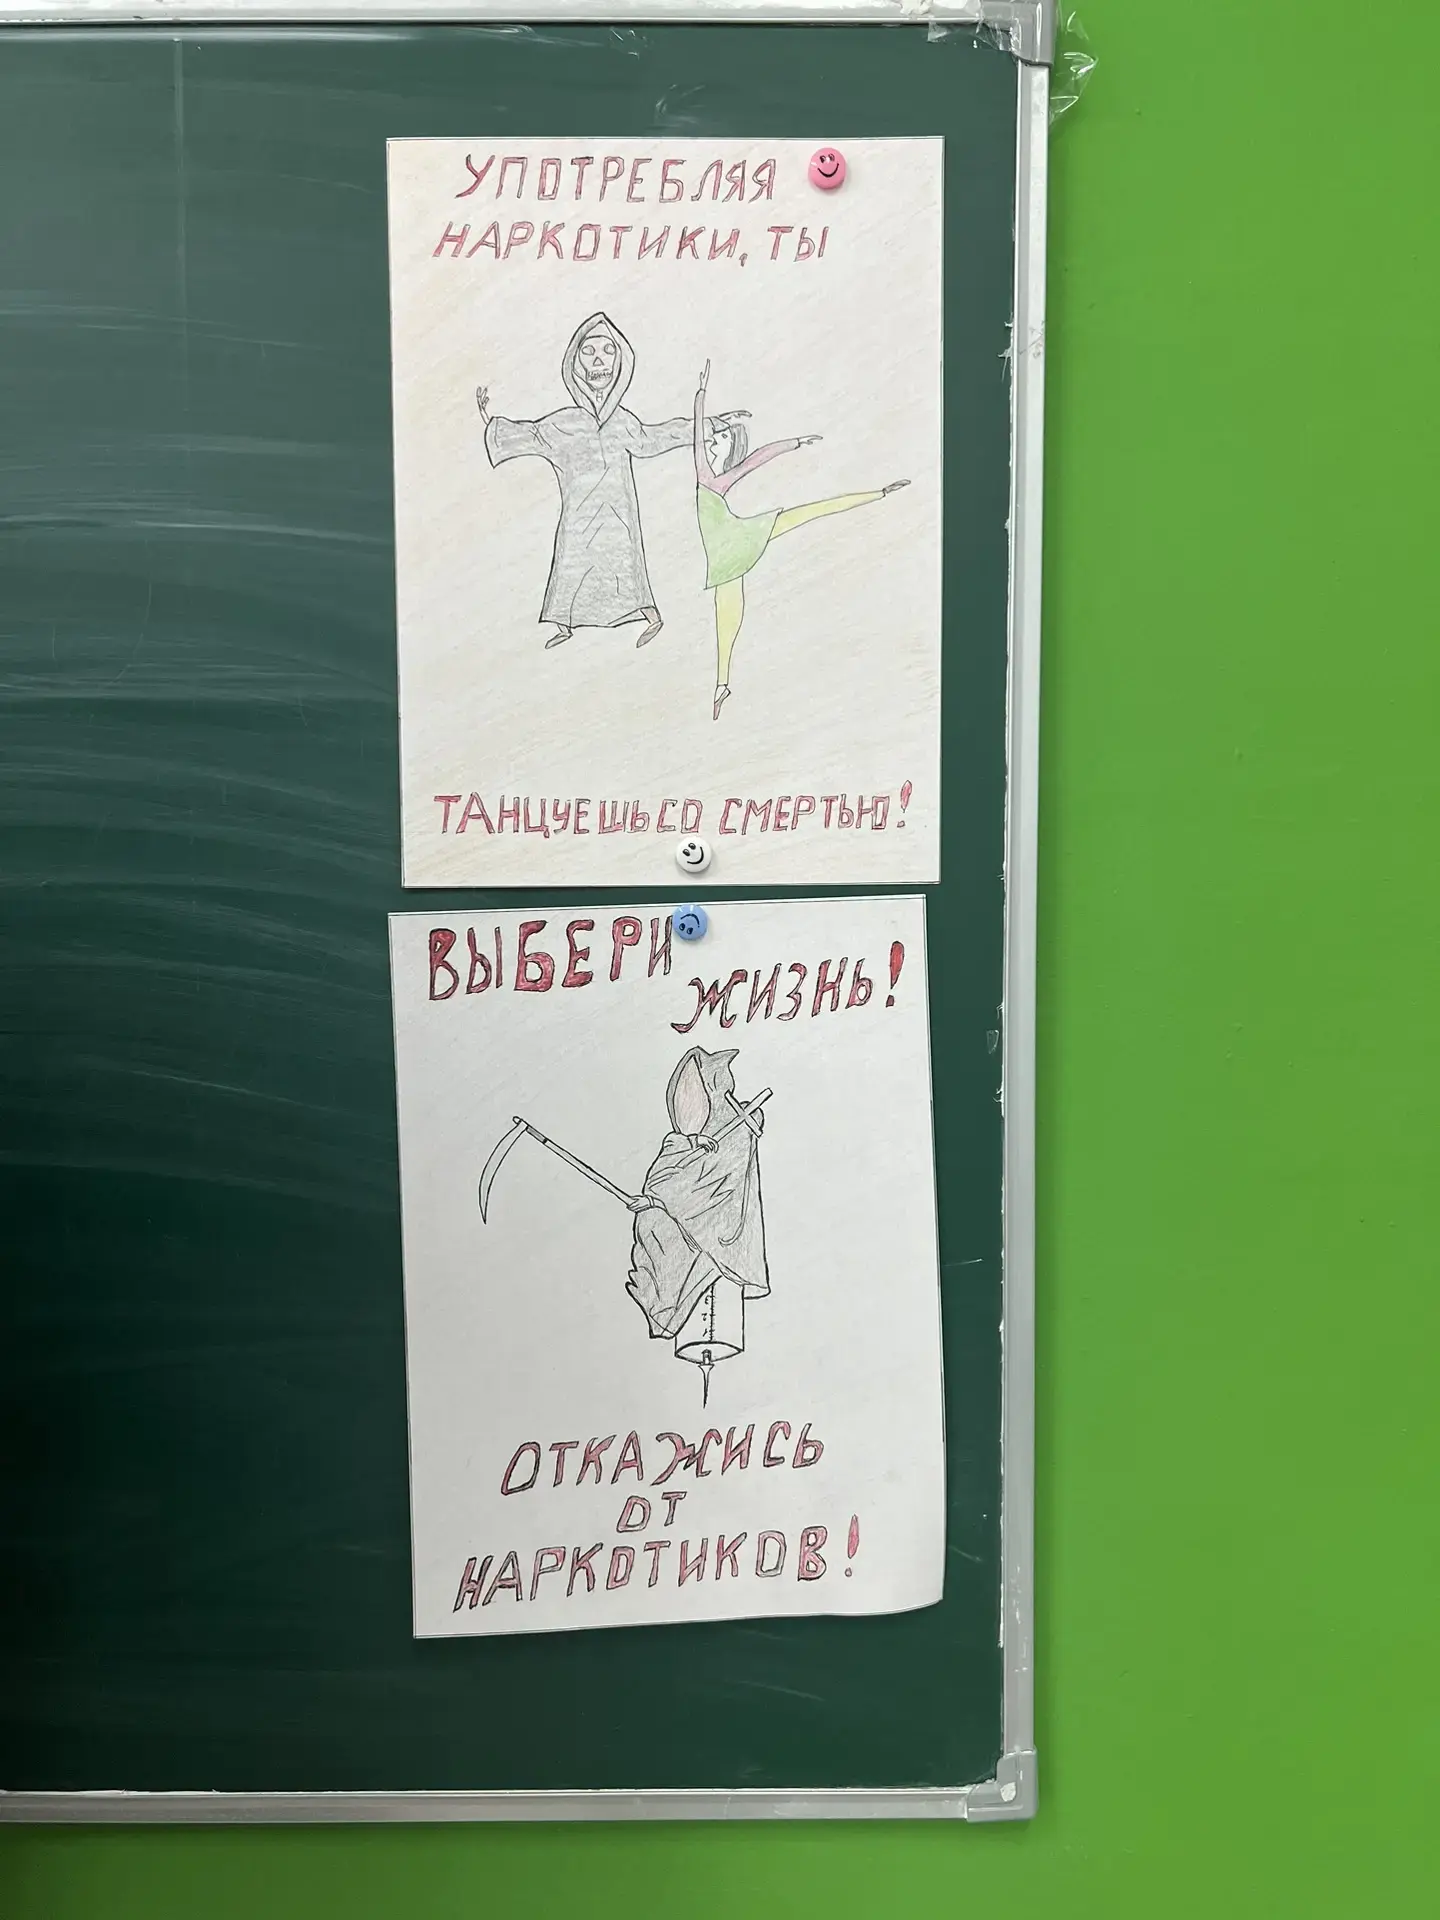 УПОТРЕБЛЯЯ
НАРКОТИКИ, ТЫ
ТАНЦУЕШЬ СО СМЕРТЬЮ!
ВЫБЕРИ
ЖИЗНЬ!
ОТКАЖИСЬ
ОТ
НАРКОТИКОВ!